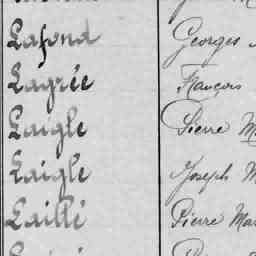 Lafond Georges
Lagrée François
Laigle Pierre
Laigle Joseph
Laillé Pierre Mar